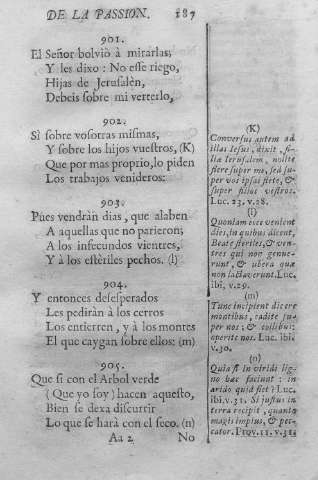 DE LA PASSION. 187
901.
El Señor bolviò à mirarlas;
Y les dixo: No esse riego,
Hijas de Jerusalèn,
Debeis sobre mi verterlo,
902.
Si sobre vosotras mismas,
Y sobre los hijos vuestros, (K)
Que por mas proprio, lo piden
Los trabajos venideros:
903.
Pues vendràn dias, que alaben
A aquellas que no parieron;
A los infecundos vientres,
Y à los estèriles pechos. (l)
904.
Y entonces desesperados
Les pediràn à los cerros
Los entierren, y à los montes
El que caygan sobre ellos: (m)
905.
Que si con el Arbol verde
(Que yo soy) hacen aquesto,
Bien se dexa discurrir
Lo que se harà con el seco. (n)
Aa 2 No
(K)
Conversus autem ad
illas Iesus, dixit, fi-
liæ Ierusalem, nolite
flere super me, sed su-
per vos ipsas flete, &
super filios vestros.
Luc. 23. v. 28.
(l)
Quoniam ecce venient
dies, in quibus dicent,
Beatæ steriles, & ven-
tres qui non genue-
runt, & ubera quæ
non lactaverunt. Luc.
ibi, v. 29.
(m)
Tunc incipient dicere
montibus, cadite su-
per nos; & collibus:
operite nos. Luc. ibi.
v. 30.
(n)
Quia si in viridi lig-
no hæc faciunt: in
arido quid fiet? Luc.
ibi, v. 31. Si justus in
terra recipit, quanto
magis impius, & pec-
cator. Prov. 11. v. 31.